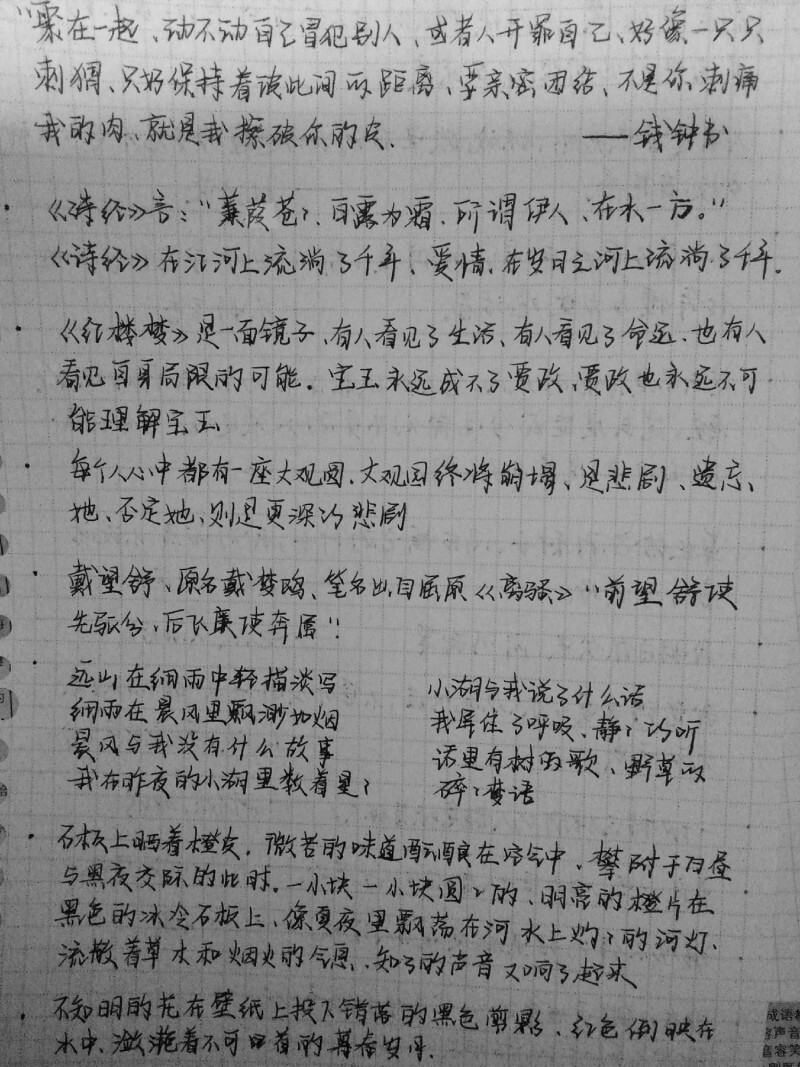 “聚在一起、动不动自己冒犯别人、或者人开罪自己、好像一只只
刺猬、只好保持着彼此间的距离、要亲密团结、不是你刺痛
我的肉、就是我擦破你的皮.
——钱钟书
《诗经》言：“蒹葭苍々、白露为霜、所谓伊人、在水一方。”
《诗经》在江河上流淌了千年、爱情、在岁月之河上流淌了千年.
《红楼梦》是一面镜子、有人看见了生活、有人看见了命运、也有人
看见自身局限的可能。宝玉永远成不了贾政、贾政也永远不可
能理解宝玉
每个人心中都有一座大观园、大观园终将崩塌、是悲剧、遗忘
她、否定她、则是更深的悲剧
戴望舒、原名戴梦鸥、笔名出自屈原《离骚》“前望舒使
先驱兮、后飞廉使奔属”！
远山在细雨中轻描淡写
细雨在晨风里飘渺如烟
晨风与我没有什么故事
我在昨夜的小湖里数着星々
小湖与我说了什么话
我屏住了呼吸、静々的听
话里有树的歌、野草的
碎々梦语
石板上晒着橙皮、微苦的味道酝酿在空气中、攀附于白昼
与黑夜交际的此时。一小块一小块圆々的、明亮的橙片在
黑色的冰冷石板上、像夏夜里飘荡在河水上灼々的河灯、
流散着草木和烟火的气息、知了的声音又响了起来
不知明的花在壁纸上投下错落的黑色剪影、红色倒映在
水中、潋滟着不可回首的暮春岁月.
成语
声音
音容笑